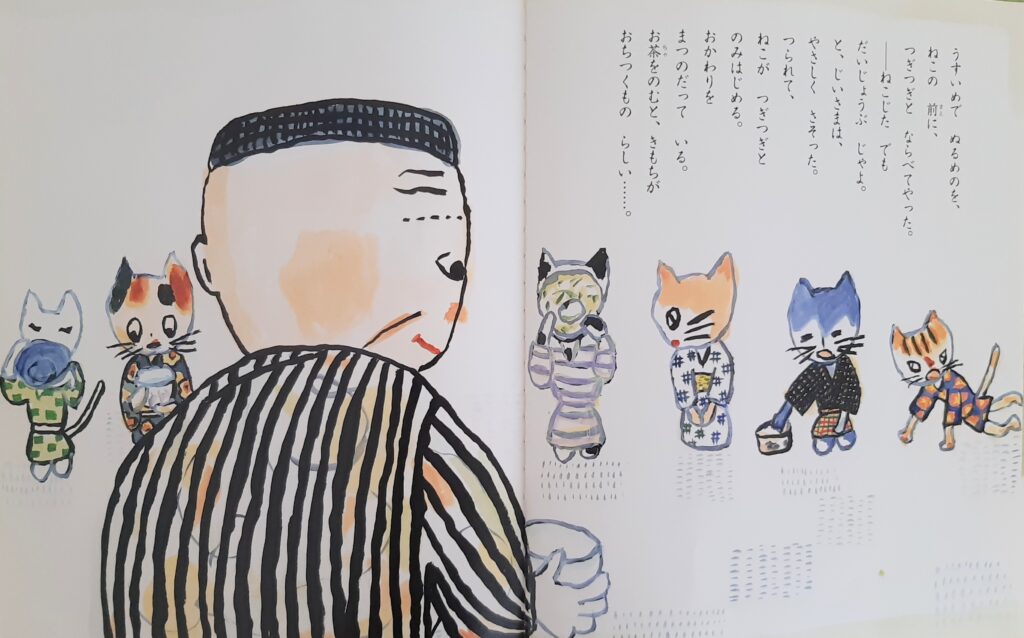 うすいめで ぬるめのを、
ねこの 前に、
つぎつぎと ならべてやった。
――ねこじた でも
だいじょうぶ じゃよ。
と、じいさまは、
やさしく さそった。
つられて、
ねこが つぎつぎと
のみはじめる。
おかわりを
まつのだって いる。
お茶をのむと、きもちが
おちつくもの らしい……。